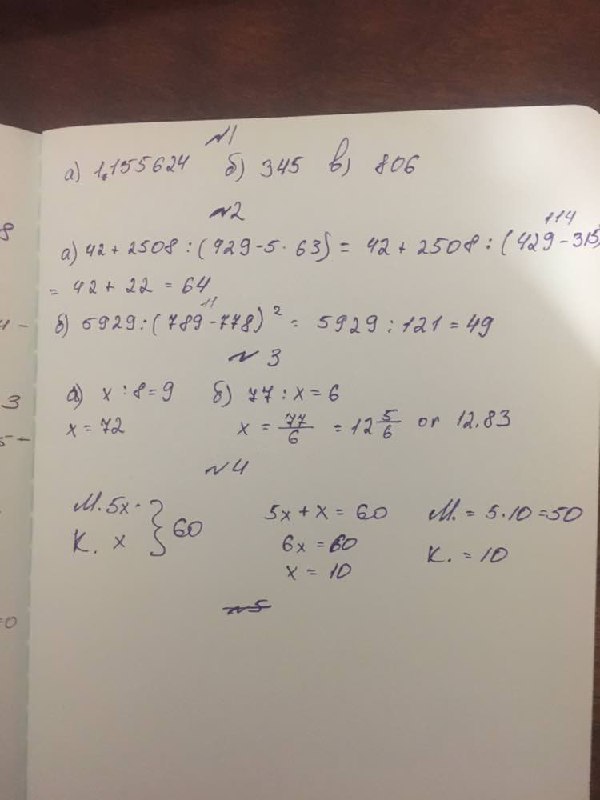 №1
а) 1,155624 б) 345 в) 806
№2
114
а) 42 + 2508 : (929 - 5 · 63) = 42 + 2508 : (429 - 315)
= 42 + 22 = 64
11
б) 5929 : (789 - 778)² = 5929 : 121 = 49
№3
а) x : 8 = 9 б) 77 : x = 6
x = 72 x = 77/6 = 12 5/6 or 12.83
№4
М. 5x · } 60 5x + x = 60 М. = 5 · 10 = 50
К. x 6x = 60 К. = 10
x = 10
№5